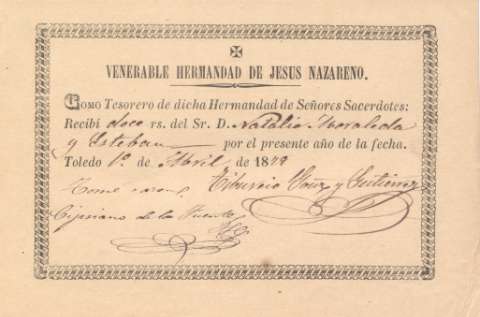 VENERABLE HERMANDAD DE JESUS NAZARENO.
Como Tesorero de dicha Hermandad de Señores Sacerdotes:
Recibí doce rs. del Sr. D. Natalio Moraleda
y Esteban por el presente año de la fecha.
Toledo 1º de Abril de 1879
Tomé razon Tiburcio Cruz y Gutierrez
Cipriano de la Fuente